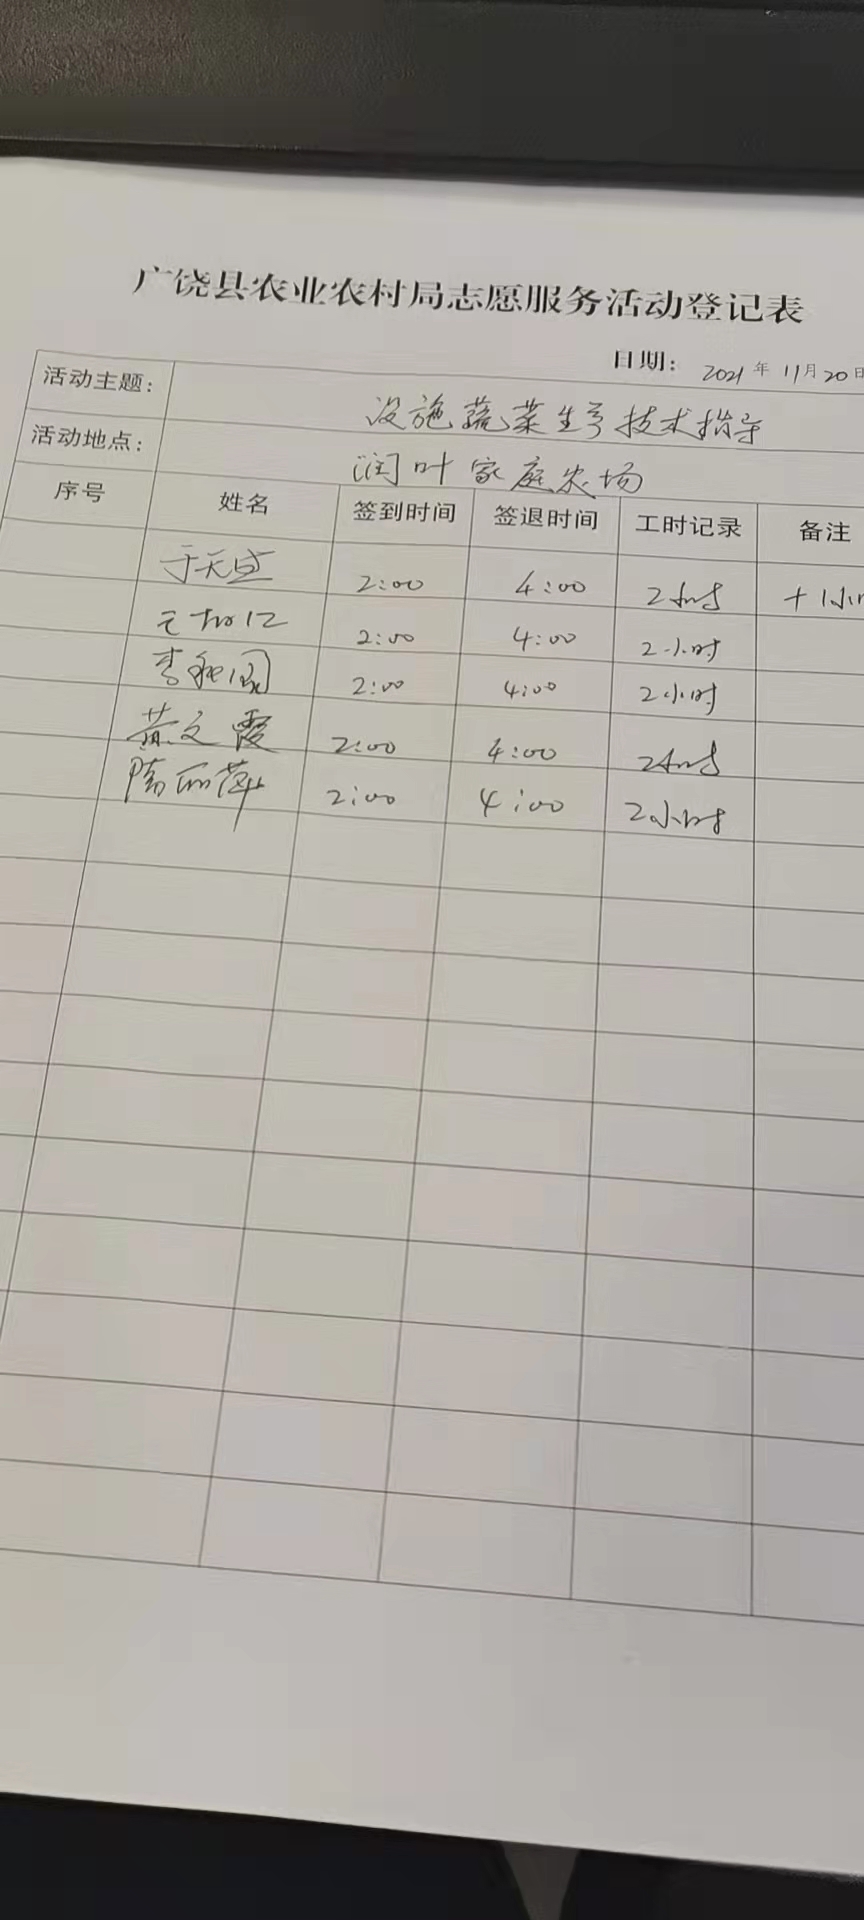 广饶县农业农村局志愿服务活动登记表
日期： 2021年11月20日
活动主题： 设施蔬菜生产技术指导
活动地点： 润叶家庭农场
序号 姓名 签到时间 签退时间 工时记录 备注
于天 2:00 4:00 2小时 +1小时
2:00 4:00 2小时
李 2:00 4:00 2小时
黄文霞 2:00 4:00 2小时
隋丽萍 2:00 4:00 2小时